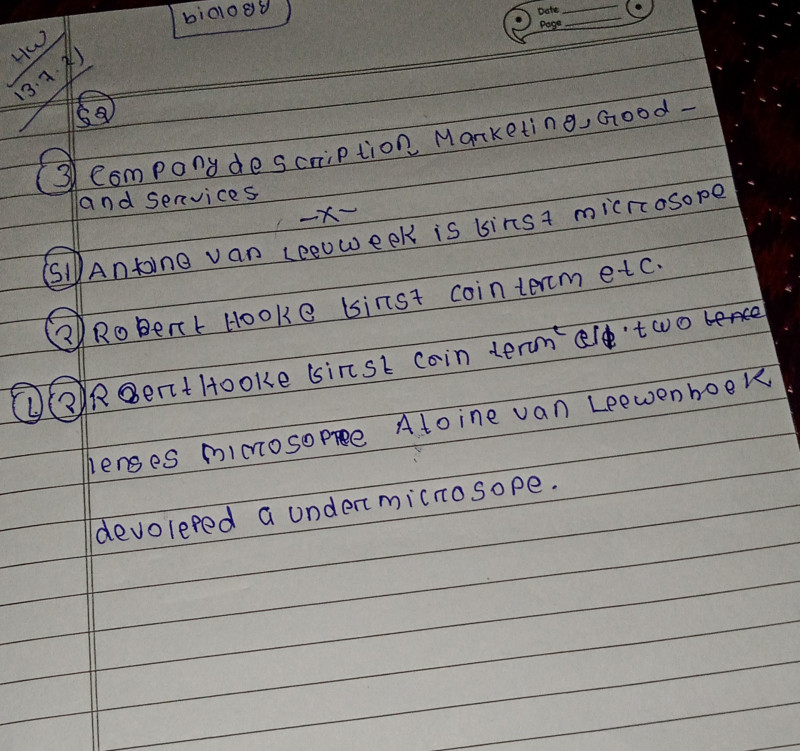 biology
Date
Page
HW
13.7.21
③ Company description, Marketing, Good -
and services
-x-
S1 Antoine van Leeuweek is first microsope
② Robert Hooke first coin term etc.
① ② Roert Hooke first coin term two
lenses microsopree Atoine van Leewenhoek
devoleped a under microsope.